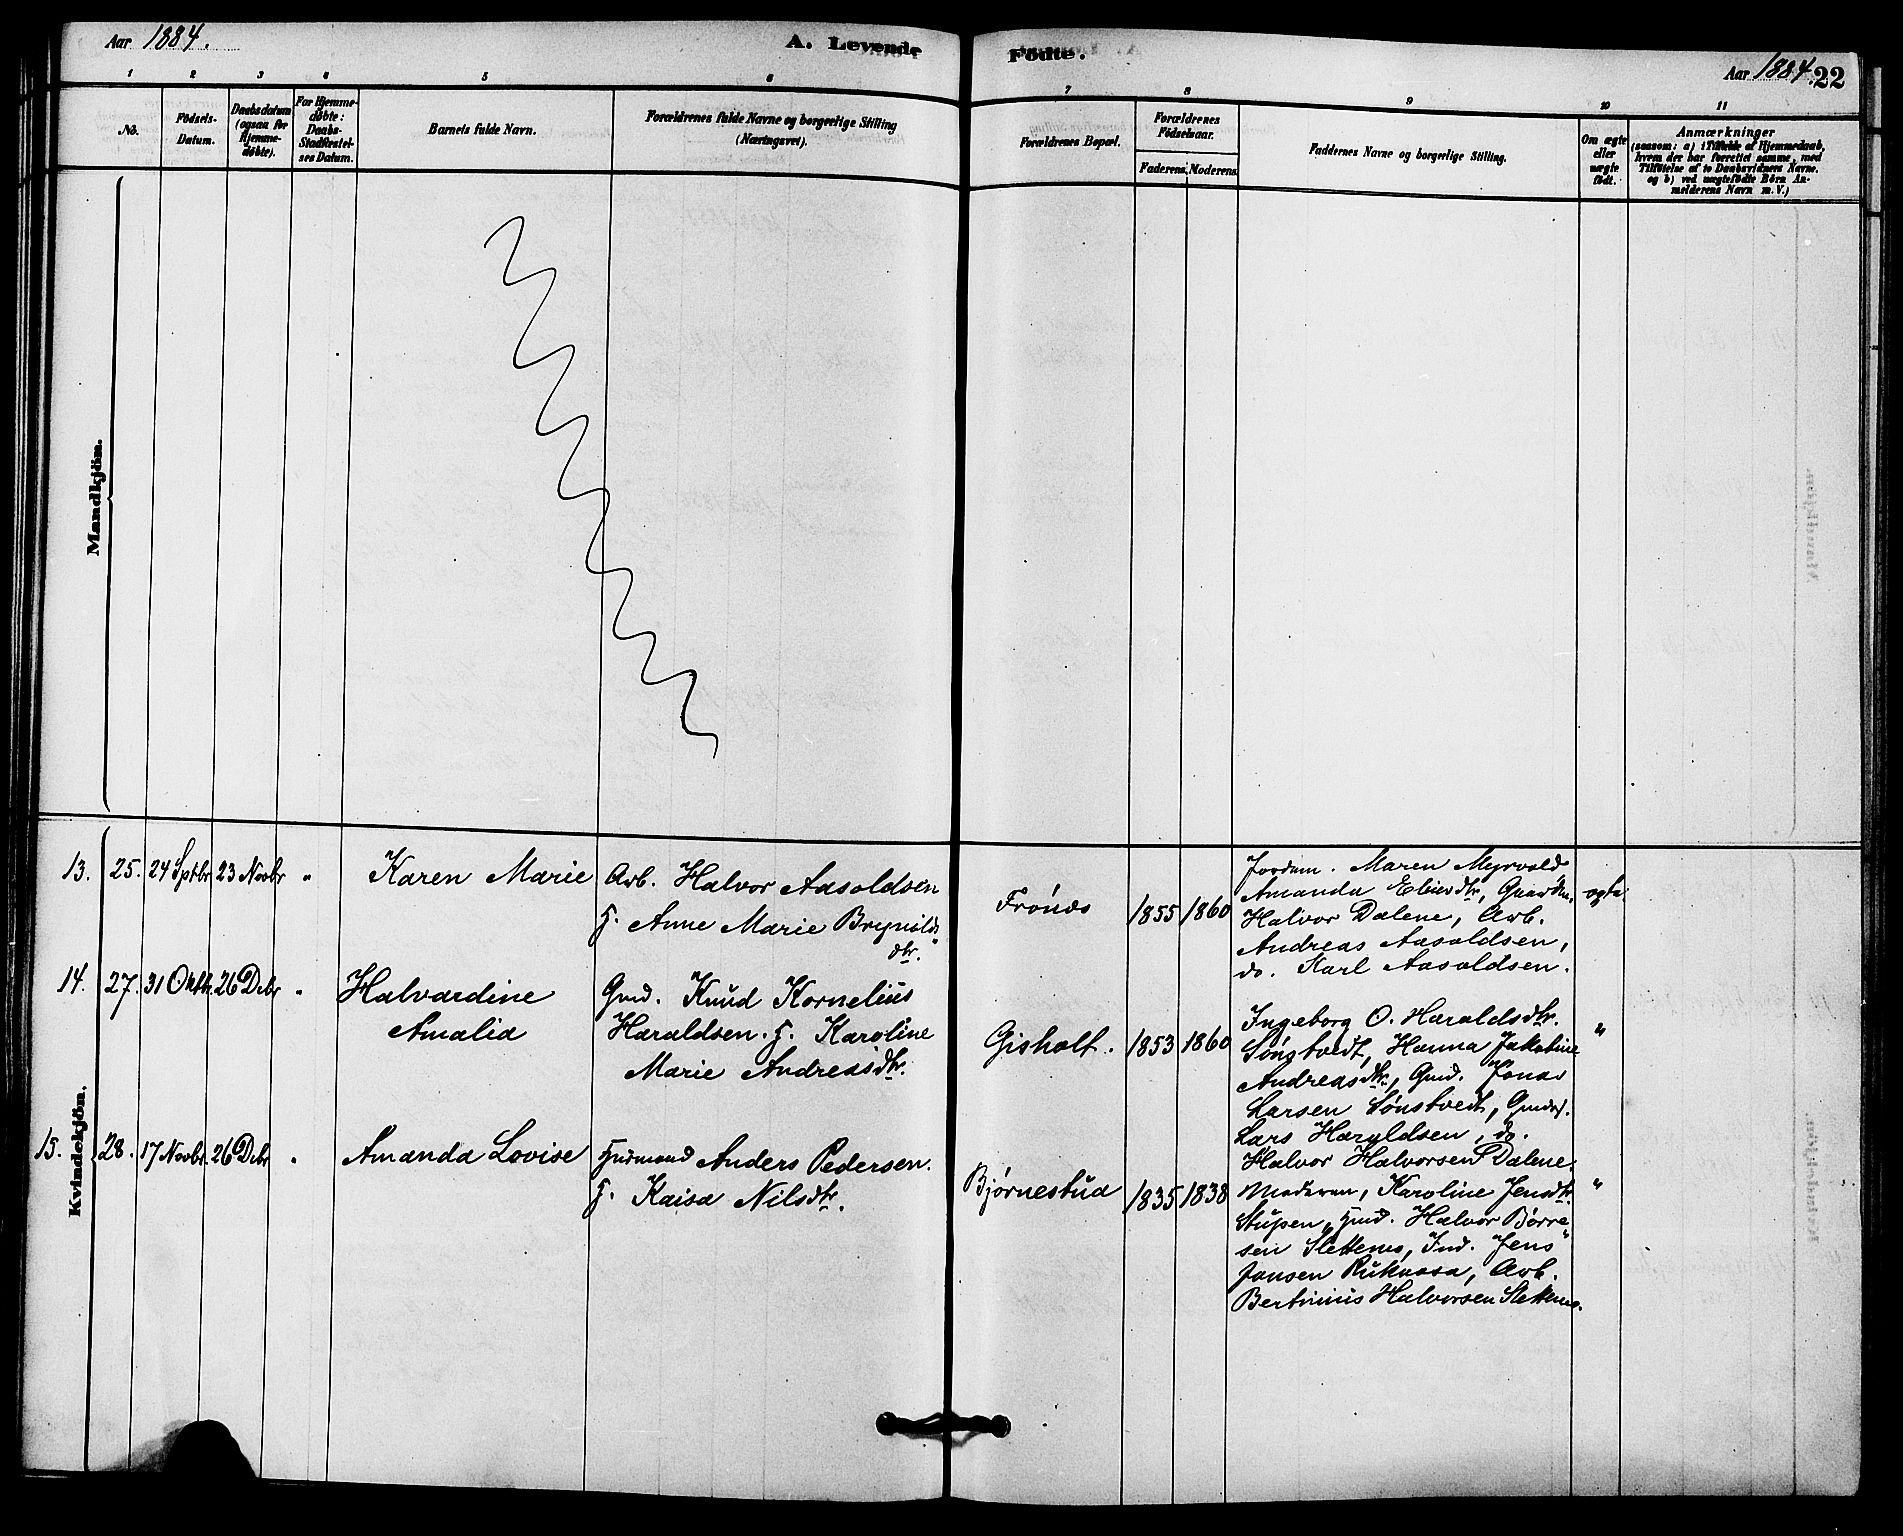 Aar 1884.
A. Levende Födte.
Aar 1884. 22
1 2 3 4 5 6 7 8 9 10 11
No.
Födsels-
Datum.
Daabsdatum
(ogsaa for
Hjemme-
døbte).
For Hjemme-
døbte:
Daabs-
Stadfæstel-
ses Datum.
Barnets fulde Navn.
Forældrenes fulde Navne og borgerlige Stilling
(Næringsvei).
Forældrenes Bopæl.
Forældrenes
Födselsaar.
Faderens. Moderens.
Faddernes Navne og borgerlige Stilling.
Om ægte
eller
uægte
født.
Anmærkninger
(saasom: a) i Tilfælde af Hjemmedaab,
hvem der har forrettet samme, med
Tilföielse af to Daabsvidners Navne.
og b) ved uægtefödte Börn An-
melderens Navn m. V.)
Mandkjön.
Kvindekjön.
13. 25. 24 Sptbr 23 Novbr "
Karen Marie
Arb. Halvor Aasoldsen
H. Anne Marie Brynilds
dtr.
Frönäs
1855 1860
Jordem. Maren Myrvold
Amanda
Halvor Dalene, Arb.
Andreas Aasoldsen,
do. Karl Aasoldsen.
ægte.
14. 27. 31 Oktbr. 26 Dcbr "
Halvardine
Amalia
Gmd. Knud Kornelius
Haraldsen. H. Karoline
Marie Andreasdtr.
Gisholt.
1853 1860
Ingeborg O. Haraldsdtr.
Sønstvedt, Hanna Jakobine
Andreasdtr., Gmd. Jonas
Larsen Sønstvedt,
Lars Haraldsen, do.
Halvor Halvorsen Dalene.
"
15. 28. 17 Novbr. 26 Dcbr "
Amanda Lovise
Husmand Anders Pedersen.
H. Kaisa Nilsdtr.
Bjørnestud
1835 1838
Moderen, Karoline Jensdtr.
Stupen, Hmd. Halvor Børre-
sen Slettene, Ind. Jens
Jansen Ruknasa, Arb.
Bertinius Halvorsen Slettene.
"